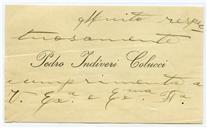 Muito respei
tosamente
Pedro Indiveri Colucci
cumprimenta a
V. Exª e Exma